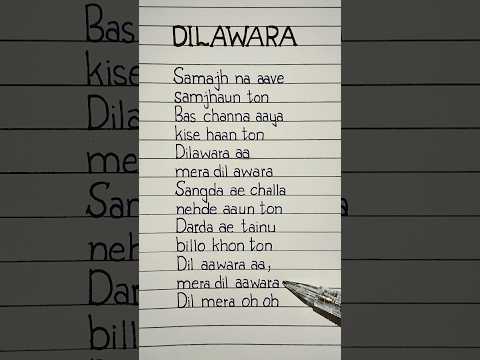 DILAWARA
Samajh na aave
samjhaun ton
Bas channa aaya
kise haan ton
Dilawara aa
mera dil awara
Sangda ae challa
nehde aaun ton
Darda ae tainu
billo khon ton
Dil aawara aa,
mera dil aawara
Dil mera oh oh